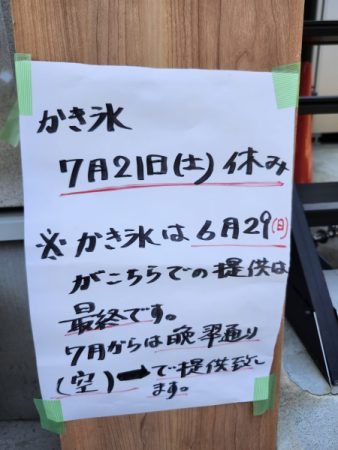 かき氷
7月21日(土) 休み
※かき氷は6月29(日)
がこちらでの提供は
最終です。
7月からは晩翠通り
(空)➡で提供致し
ます。